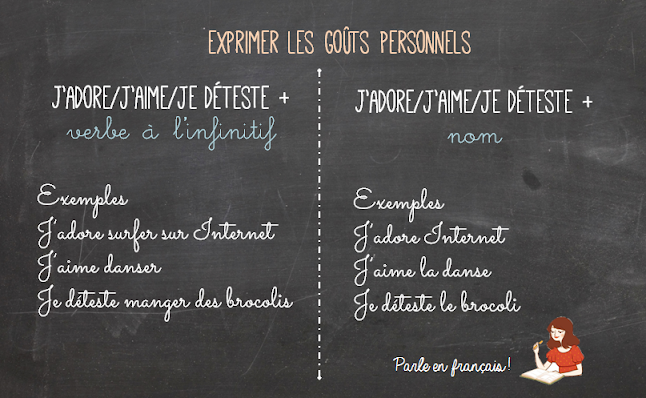 EXPRIMER LES GOÛTS PERSONNELS
J'ADORE/J'AIME/JE DÉTESTE +
verbe à l'infinitif
Exemples
J'adore surfer sur Internet
J'aime danser
Je déteste manger des brocolis
J'ADORE/J'AIME/JE DÉTESTE +
nom
Exemples
J'adore Internet
J'aime la danse
Je déteste le brocoli
Parle en français!